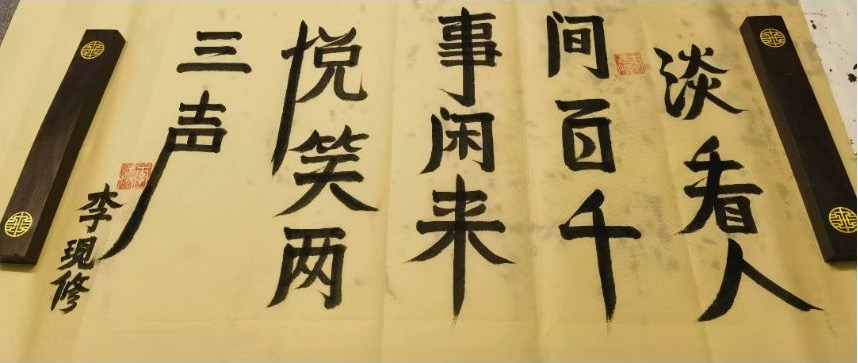 淡看人
间百千
事闲来
悦笑两
三声
李现修